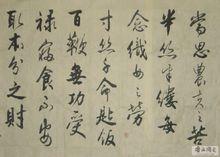 當思農夫之苦
半丝半缕每
念織女之勞
寸丝千命匙飯
百鞭無功受
禄寢食不安
取本分之財